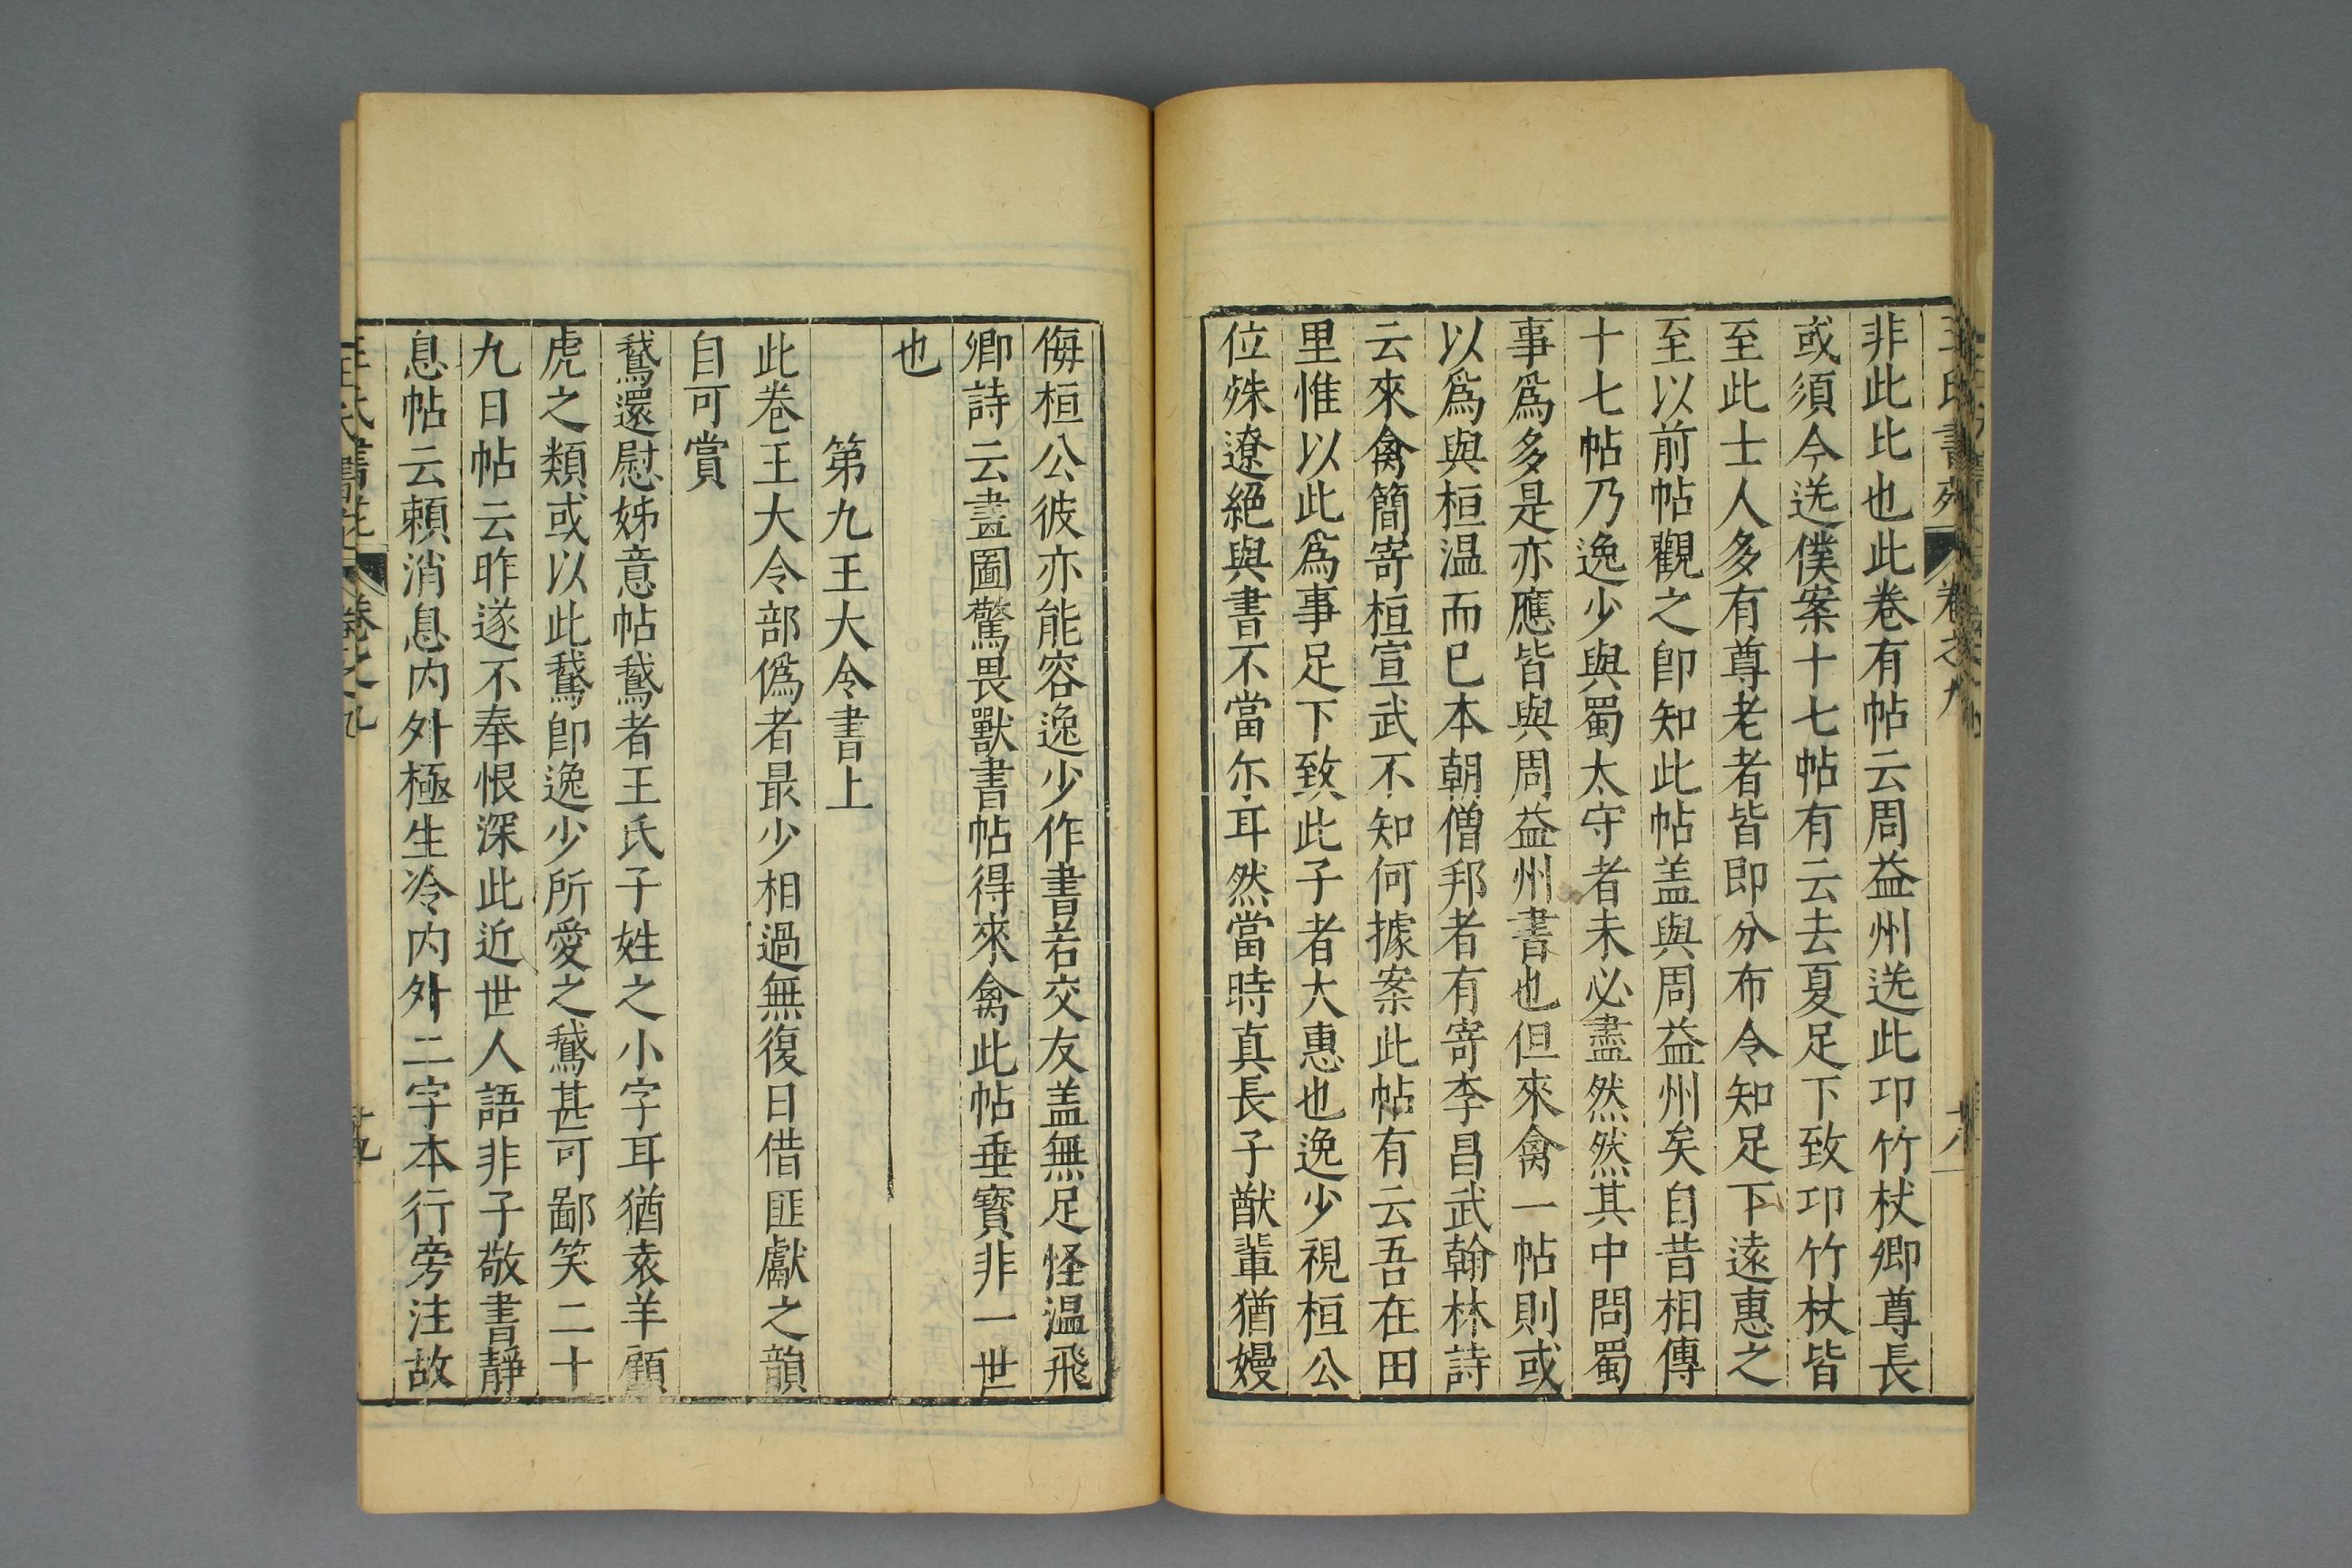 非此比也此卷有帖云周益州送此卭竹杖卿尊長
或須今送僕案十七帖有云去夏足下致卭竹杖皆
至此士人多有尊老者皆即分布令知足下遠惠之
至以前帖觀之卽知此帖盖與周益州矣自昔相傳
十七帖乃逸少與蜀太守者未必盡然然其中問蜀
事爲多是亦應皆與周益州書也但來禽一帖則或
以爲與桓温而已本朝僧邦者有寄李昌武翰林詩
云來禽簡寄桓宣武不知何據案此帖有云吾在田
里惟以此爲事足下致此子者大惠也逸少視桓公
位殊遼絕與書不當尓耳然當時真長子猷輩猶嫚
侮桓公彼亦能容逸少作書若交友盖無足怪温飛
卿詩云畫圖驚畏獸書帖得來禽此帖垂寳非一世
也
第九王大令書上
此卷王大令部僞者最少相過無復日借匪獻之韻
自可賞
鵞還慰姊意帖鵞者王氏子姓之小字耳猶袁羊顧
虎之類或以此鵞卽逸少所愛之鵞甚可鄙笑二十
九日帖云昨遂不奉恨深此近世人語非子敬書靜
息帖云頼消息内外極生冷内外二字本行旁注故